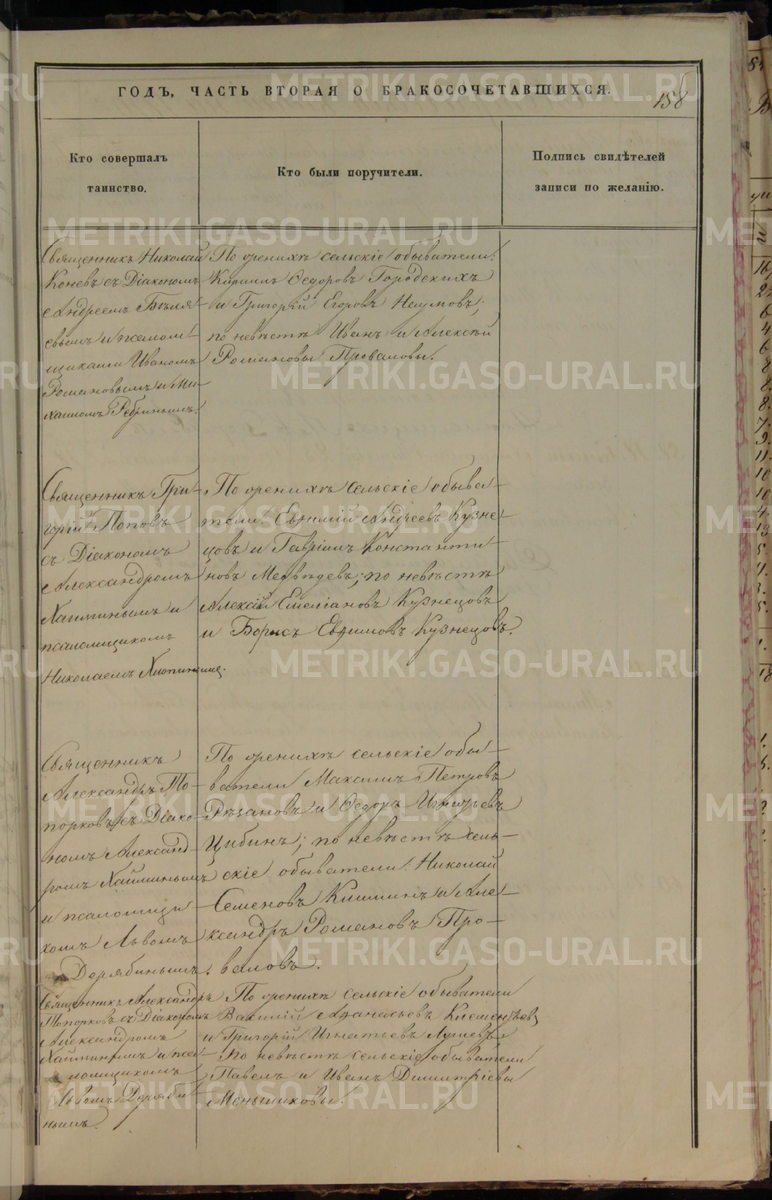 ГОДЪ, ЧАСТЬ ВТОРАЯ О БРАКОСОЧЕТАВШИХСЯ.
158
Кто совершалъ
таинство.
Кто были поручители.
Подпись свидѣтелей
записи по желанію.
Священникъ Николай
Коневъ съ Діакономъ
Андреемъ Бѣля
евымъ и псалом
щиками Иваномъ
Романовымъ и Ми
хаиломъ
По женихѣ сельскіе обыватели:
Кириллъ Ѳедоровъ Городскихъ
и Григорій Егоровъ Наумовъ;
по невѣстѣ Иванъ и Алексѣй
Романовы Проваловы.
Священникъ Гри
горій Поповъ
съ Діакономъ
Александромъ
Хаминымъ и
псаломщикомъ
Николаемъ
По женихѣ сельскіе обыва
тели: Евфимій Андреевъ Кузне
цовъ и Гавріилъ Константи
новъ Медвѣдевъ; по невѣстѣ
Алексій Емеліановъ Кузнецовъ
и Борисъ Евфимовъ Кузнецовъ.
Священникъ
Александръ То
порковъ съ Діако
номъ Александ
ромъ
и псаломщи
комъ Львомъ
Дерябинымъ.
По женихѣ сельскіе обы
ватели Максимъ Петровъ
Рѣзановъ и Ѳедоръ Игнатьевъ
Цибинъ; по невѣстѣ сель
скіе обыватели: Николай
Семеновъ Кишкинъ и Але
ксандръ Романовъ Про
валовъ.
Священникъ Александръ
Топорковъ съ Діакономъ
Александромъ
и пса
ломщикомъ
Львомъ Деряби
нымъ.
По женихѣ сельскіе обыватели
Василій Аѳанасьевъ Клементьев
и Григорій Игнатьевъ
По невѣстѣ сельскіе обыватели
Павелъ и Иванъ Димитріевы
Меньшиковы.
METRIKI.GASO-URAL.RU